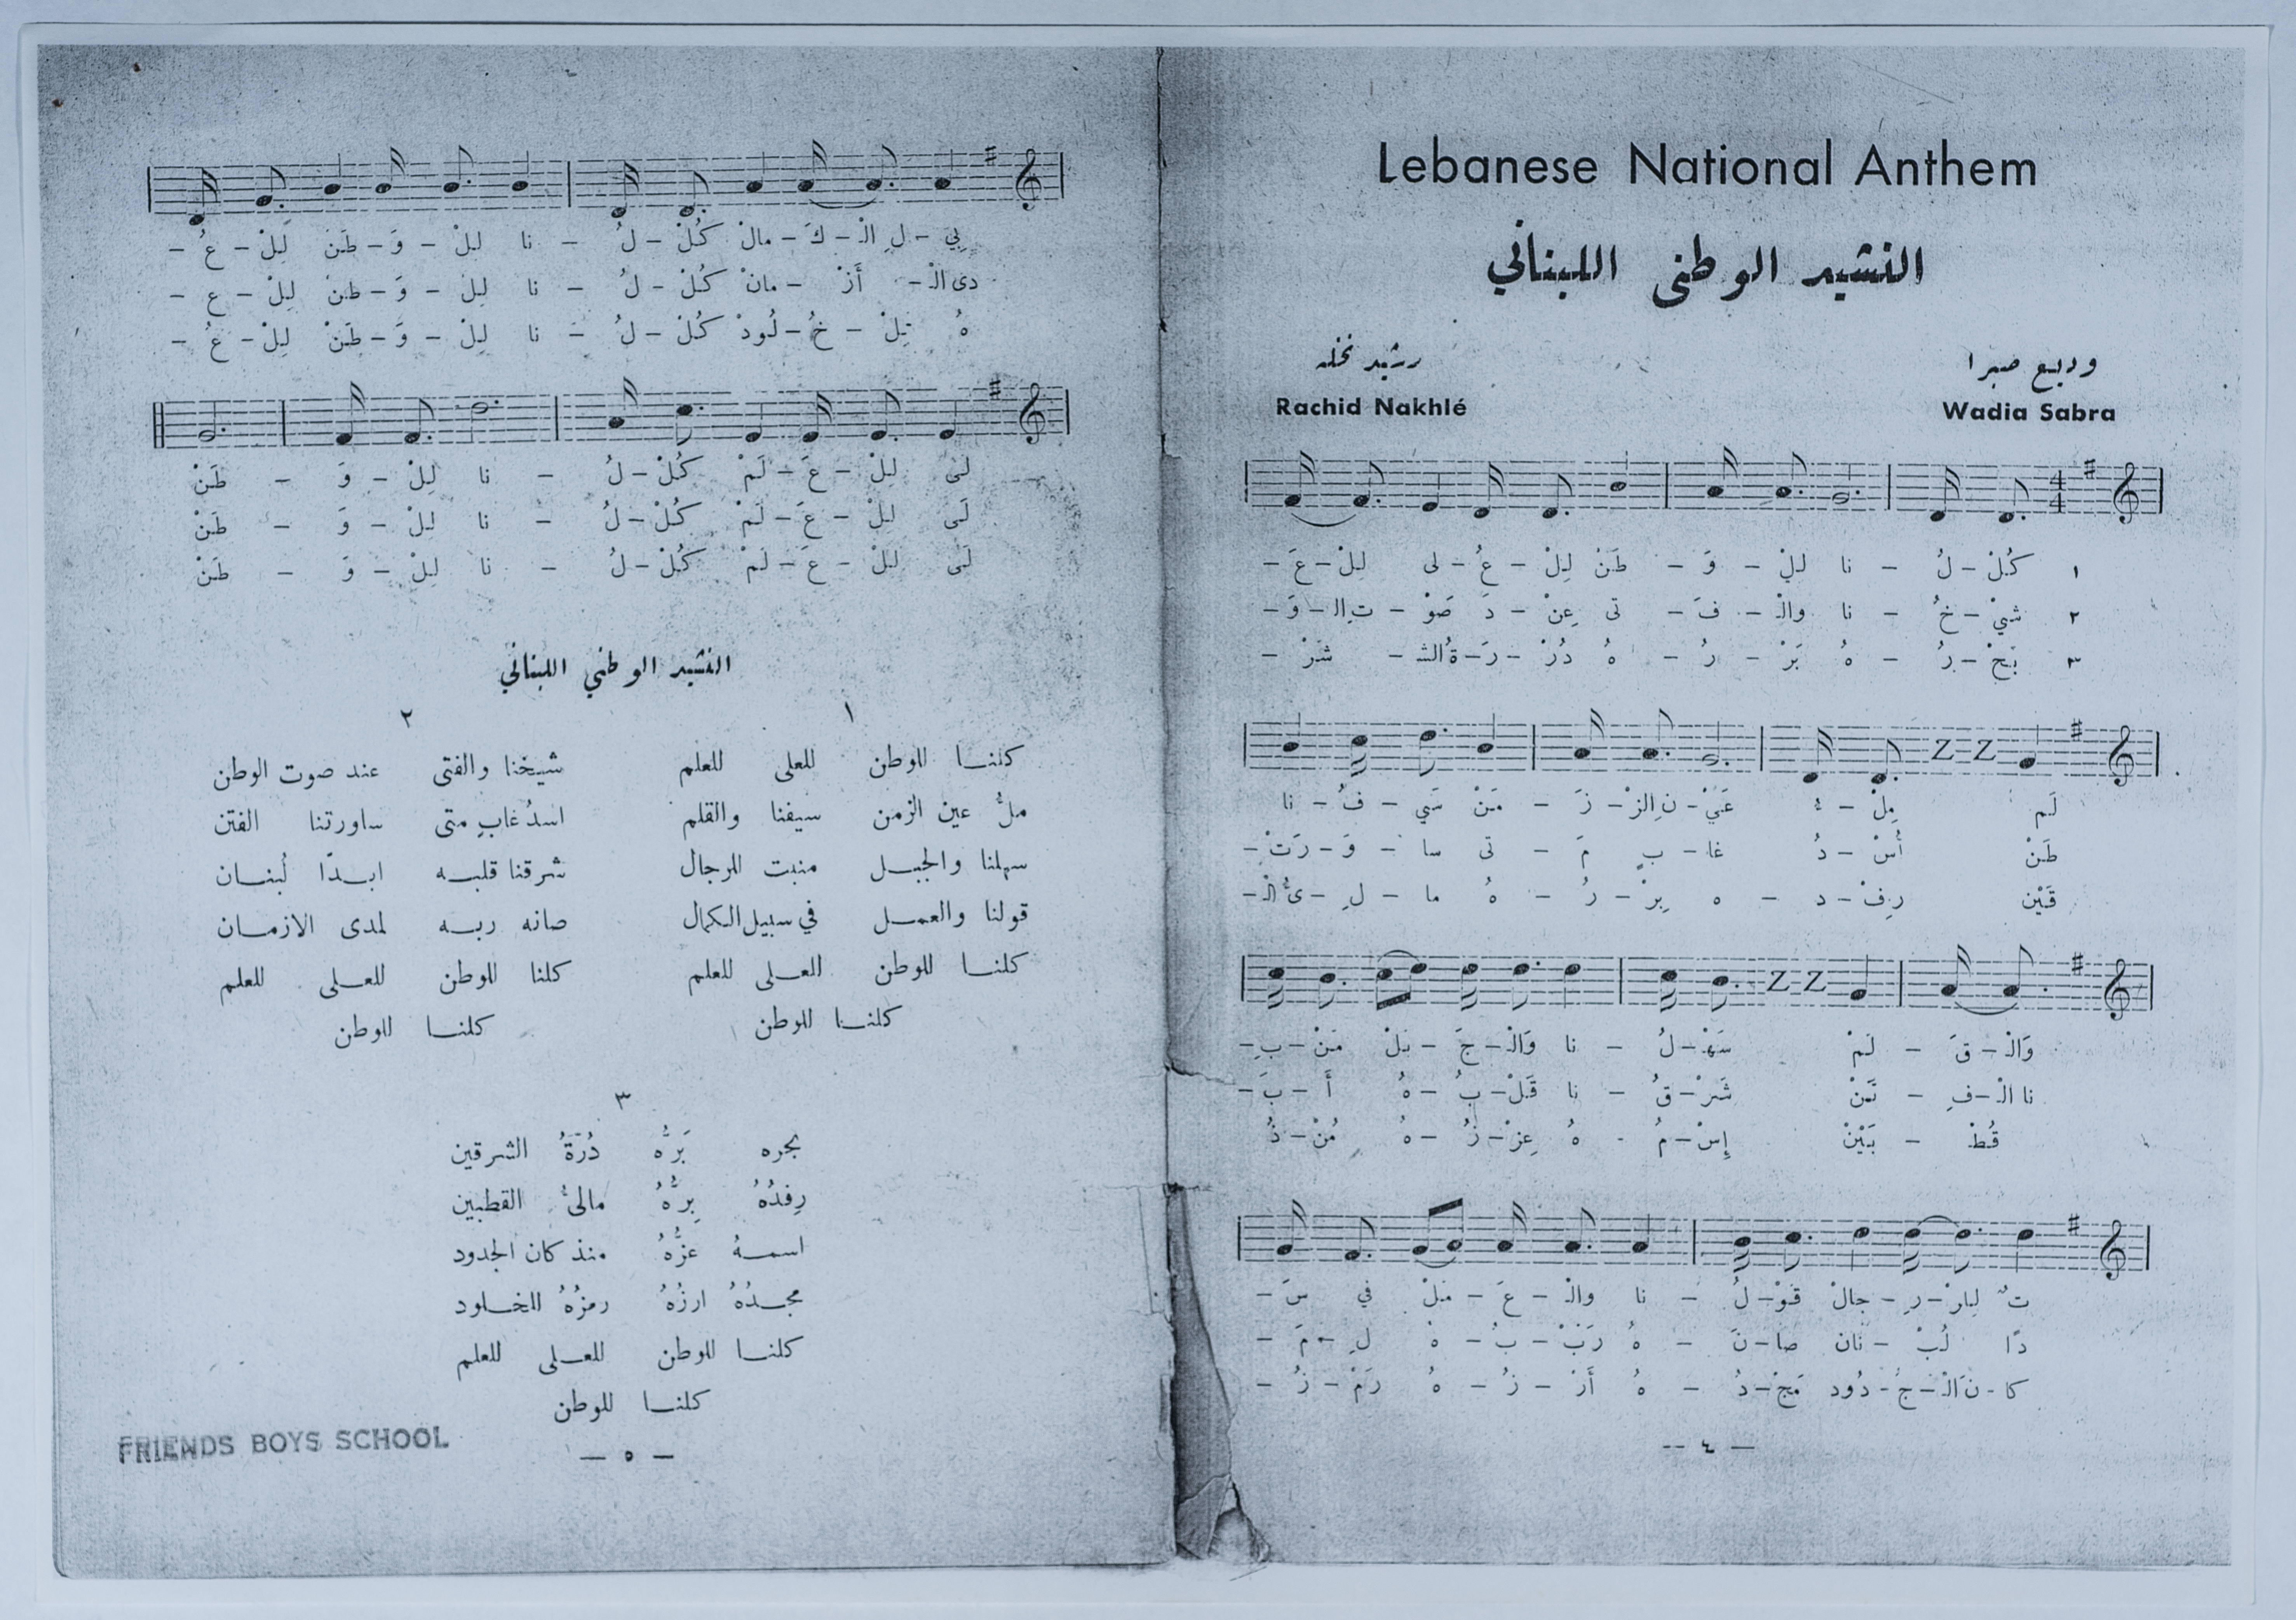 Lebanese National Anthem
النشيد الوطني اللبناني
وديع صبرا
رشيد نخله
Wadia Sabra
Rachid Nakhlé
١ كُلْ - لُ - نا لِلْ - وَ - طَنْ لِلْ - عُ - لى لِلْ - عَ -
٢ شَيْ - خُ - نا وَالْـ - فَ - تى عِنْ - دَ صَوْ - تِ الْـ - وَ -
٣ بَحْ - رُ - هُ بَرْ - رُ - هُ دُرْ - رَ - ةُ الشْـ - شَرْ -
لَم مِلْ - ءُ عَيْ - نِ الزْ - زَ - مَنْ سَي - فُ - نا
طَنْ أُسْ - دُ غا - بٍ مَ - تى سا - وَ - رَتْ -
قَيْن رِفْ - د - ه بِرْ - رُ - هُ ما - لِ - ئُ الْـ -
وَالْـ - قَ - لَمْ سَهْـ - لُ - نا وَالْـ - جَ - بَلْ مَنْ - بِـ -
نا الْـ - فِ - تَنْ شَرْ - قُ - نا قَلْ - بُ - هُ أَ - بَ -
قُطْ - بَيْنْ إِسْ - مُ - هُ عِزْ - زُ - هُ مُنْ - ذُ
تُ لِلرْ - رِ - جالْ قَوْ - لُ - نا والْـ - عَ - مَلْ في سَ -
دًا لُبْ - نان صا - نَ - هُ رَبْ - بُ - هُ لِ - مَ -
كا - نَ الْـ - جُ - دُود مَجْ - دُ - هُ أَرْ - زُ - هُ رَمْ - زُ -
-- ٤ —
بي - لِ الْـ - كَ - مالْ كُلْ - لُ - نا لِلْ - وَ - طَنْ لِلْ - عُ -
دى الْـ - أَزْ - مانْ كُلْ - لُ - نا لِلْ - وَ - طنْ لِلْ - ع -
هُ لِلْ - خُ - لُودْ كُلْ - لُ - نا لِلْ - وَ - طَنْ لِلْ - عُ -
لَى لِلْ - عَ - لَمْ كُلْ - لُ - نا لِلْ - وَ - طَنْ
لَى لِلْ - عَ - لَمْ كُلْ - لُ - نا لِلْ - وَ - طَنْ
لَى لِلْ - عَ - لَمْ كُلْ - لُ - نا لِلْ - وَ - طَنْ
النشيد الوطني اللبناني
١
كلنا للوطن للعلى للعلم
ملُّ عين الزمن سيفنا والقلم
سهلنا والجبل منبت للرجال
قولنا والعمل في سبيل الكمال
كلنا للوطن للعلى للعلم
كلنا للوطن
٢
شيخنا والفتى عند صوت الوطن
اسدُ غابٍ متى ساورتنا الفتن
شرقنا قلبه ابدًا لُبنان
صانه ربه لمدى الازمان
كلنا للوطن للعلى للعلم
كلنا للوطن
٣
بحره بَرُّهُ دُرَّةُ الشرقين
رِفدُهُ بِرُّهُ مالئُ القطبين
اسمهُ عزُّهُ منذ كان الجدود
مجدُهُ ارزُهُ رمزُهُ للخلود
كلنا للوطن للعلى للعلم
كلنا للوطن
FRIENDS BOYS SCHOOL
— ٥ —